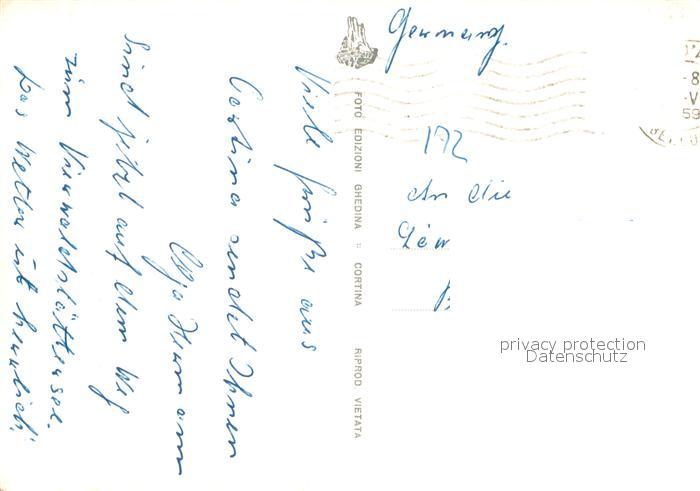 Viele Grüße aus
Cortina sendet Ihnen
Olga
Sind jetzt auf dem Weg
zum Vierwaldstättersee.
Das Wetter ist herrlich!
FOTO EDIZIONI GHEDINA :: CORTINA RIPROD VIETATA
Germany.
172
An die
-8
-V
59
privacy protection
Datenschutz